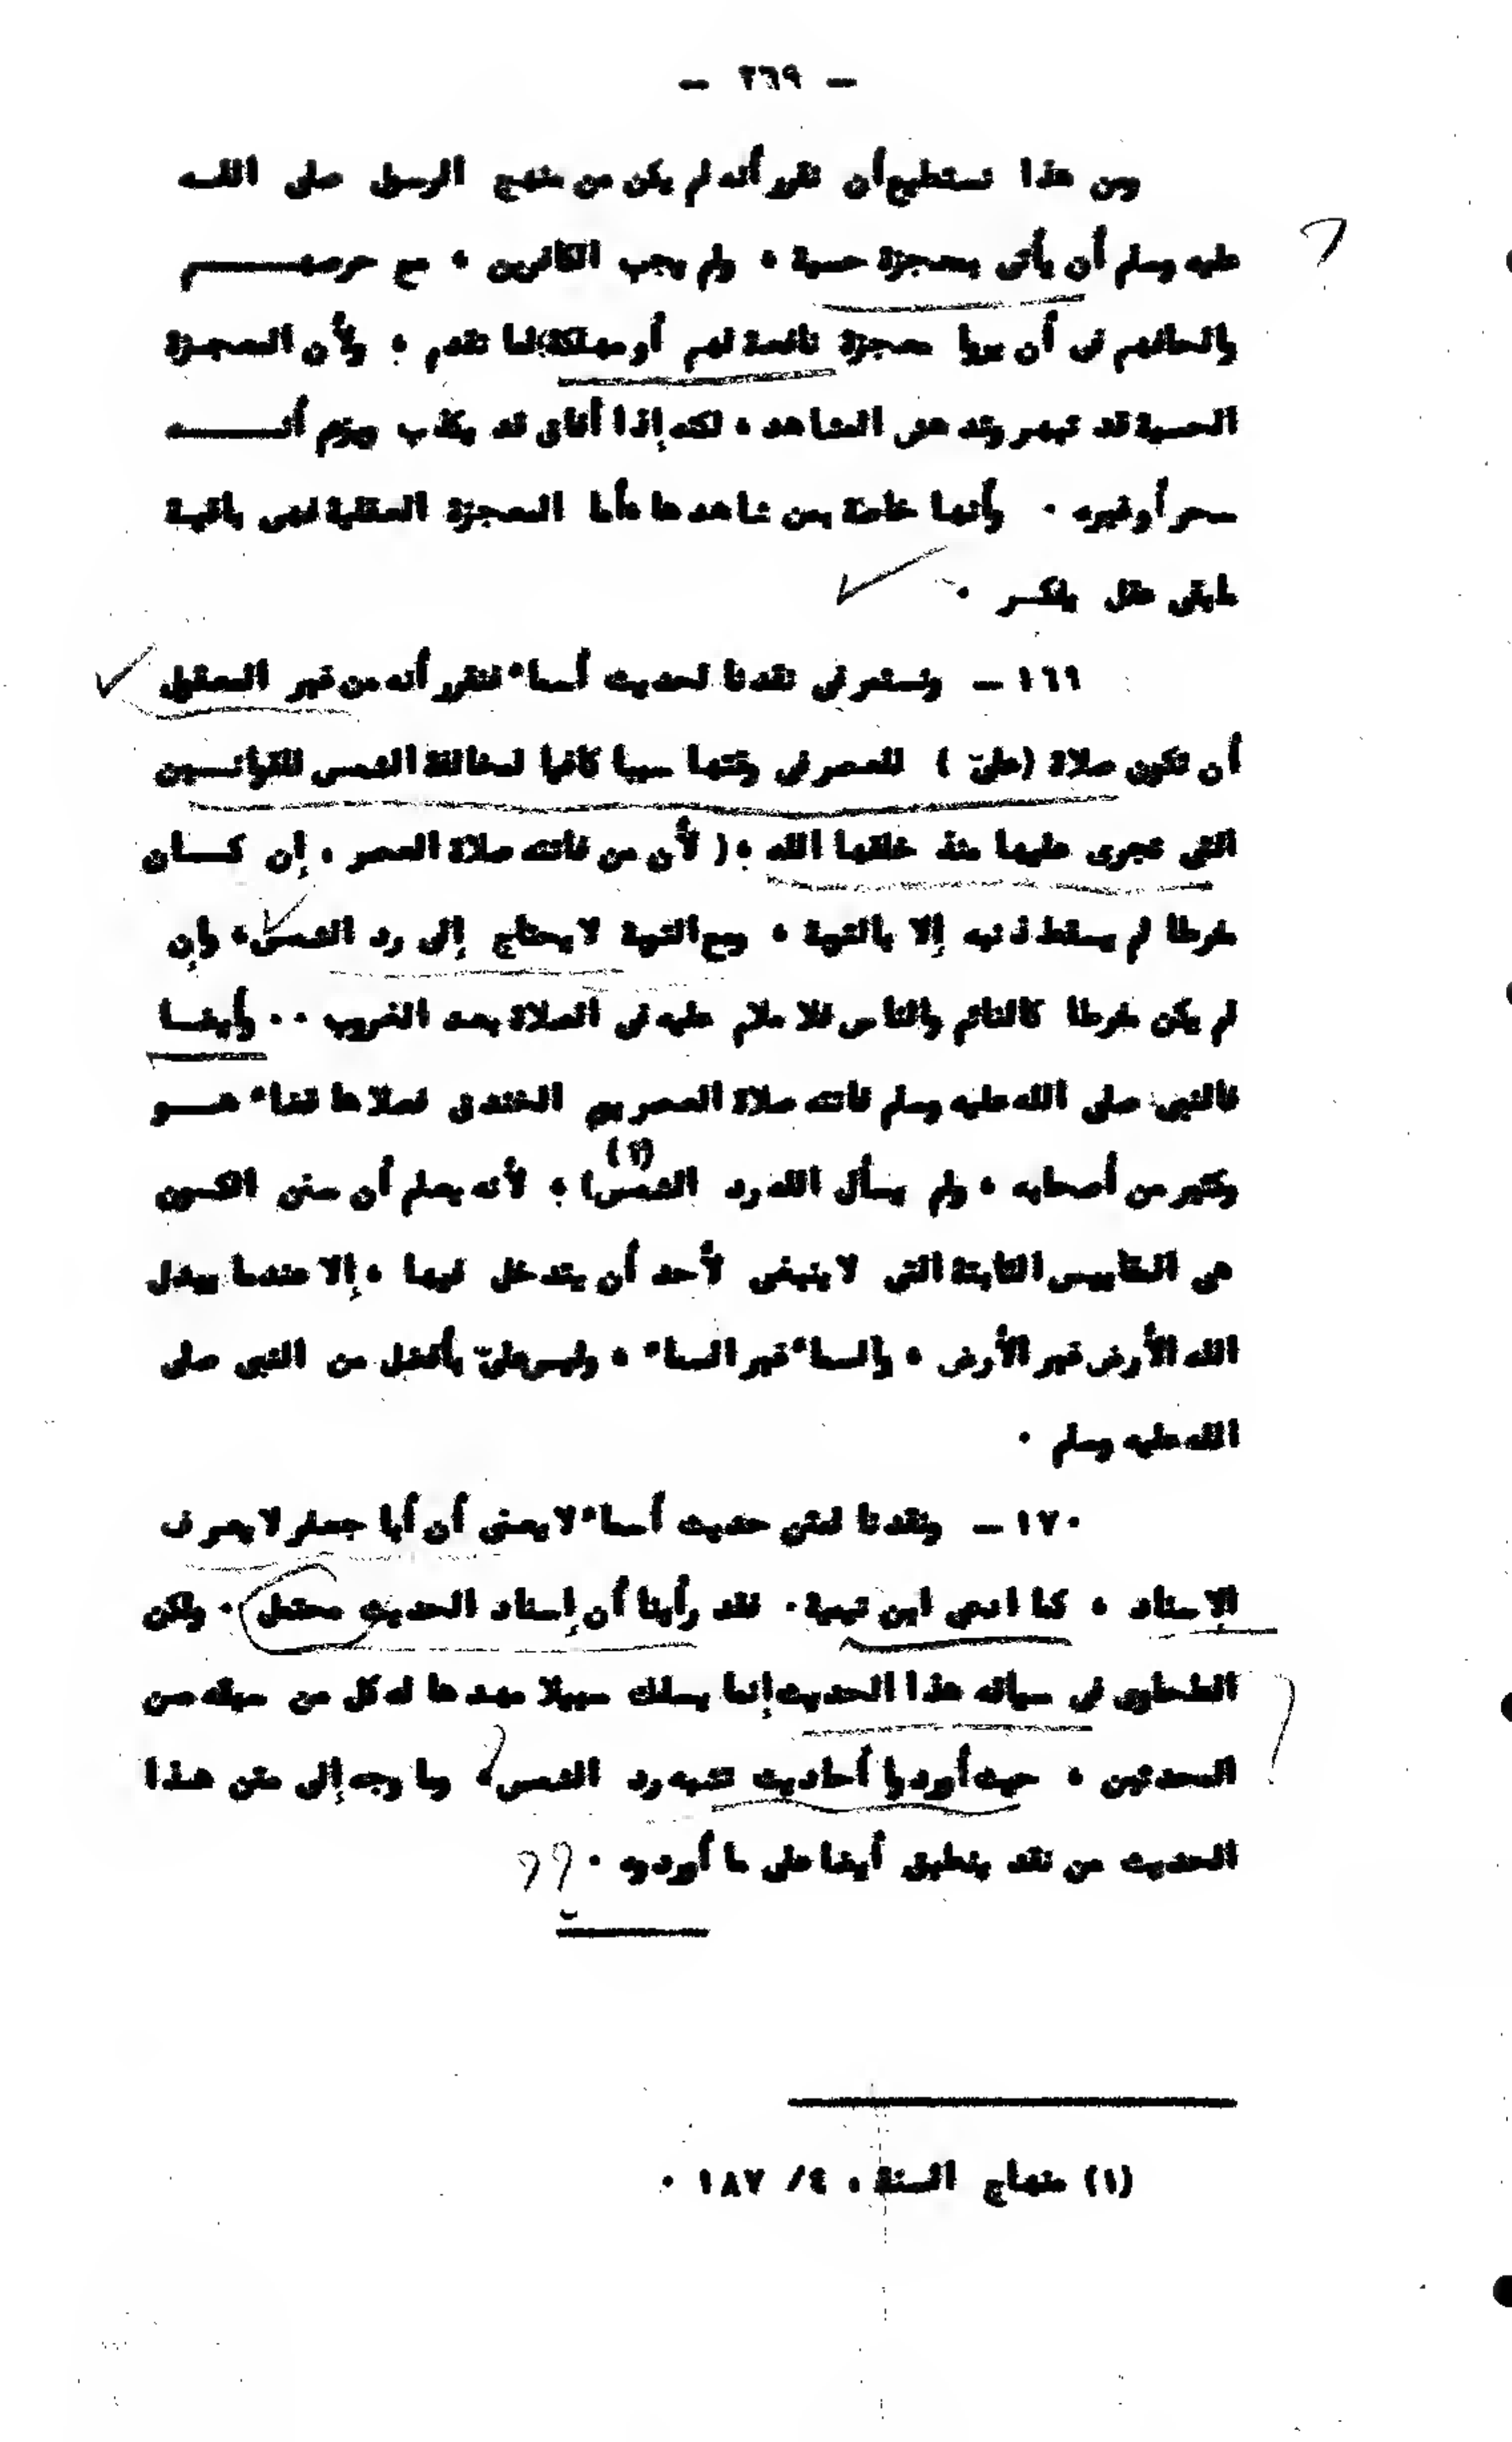 — ٢٦٩ —
ومن هذا نستطيع أن نقرر أنه لم يكن من منهج الرسول صلى الله
عليه وسلم أن يأتى بمعجزة حسية ، ولم يجب الكافرين ، مع حرصهم
وإلحافهم فى أن يروا معجزة نافعة لهم أو مهلكة لما تقدم ؛ ولأن المعجزة
الحسية قد تبهر وتدهش المشاهد ، لكنه إذا أفاق قد يكذب ويزعم أنه
سحر أو غيره . وأنها خاصة بمن شاهدها وأما المعجزة العقلية فهى باقية
مابقى عقل يفكر .
١٦٩ — ونستمر فى نقدنا لحديث أسماء فنقرر أنه من غير المعقول
أن تكون صلاة (علىّ ) للعصر فى وقتها سببا كافيا لمخالفة الشمس للقوانين
التى تجرى عليها منذ خلقها الله ؛ ( لأن من فاتته صلاة العصر ، إن كان
مفرطا لم يسقط ذنبه إلا بالتوبة ، ومع التوبة لا يحتاج إلى رد الشمس ، وإن
لم يكن مفرطا كالنائم والناسى فلا ملام عليه فى الصلاة بعد الغروب . . وأيضا
فالنبى صلى الله عليه وسلم فاتته صلاة العصر يوم الخندق فصلاها قضاء هو
وكثير من أصحابه ، ولم يسأل الله رد الشمس) (١) ؛ لأنه يعلم أن سنن الكون
هى المقاييس الثابتة التى لا ينبغى لأحد أن يتدخل فيها ، إلا عندما يبدل
الله الأرض غير الأرض ، والسماء غير السماء ، وليس علىّ بأفضل من النبى صلى
الله عليه وسلم .
١٧٠ — ونقدنا لمتن حديث أسماء لا يعنى أن أبا جعفر لا يعرف
الإسناد ، كما ادعى ابن تيمية . فقد رأينا أن إسناد الحديث محتمل . ولكن
الطحاوى فى سياقه هذا الحديث إنما يسلك سبيلا مهدها له كل من سبقه من
المحدثين ، حيث أوردوا أحاديث تشبه رد الشمس ، وما وجه إلى متن هذا
الحديث من نقد ينطبق أيضا على ما أوردوه .
(١) منهاج السنة ، ٤/ ١٨٧ .